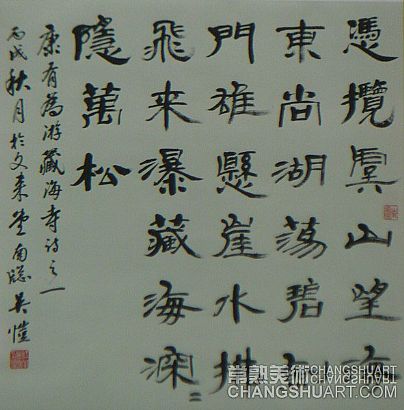 憑攬虞山望
東尚湖蕩碧劍
門雄懸崖水
飛来瀑藏海深=
隱萬松
康有為游藏海寺诗之一
丙戌秋月於文来堂南窓吴愷
常熟美術CHANGSHUART
CHANGSHUART.COM